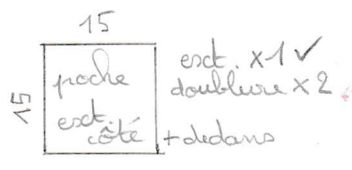 15
15
poche
ext.
côté
ext. x1 ✓
doublure x2
+ dedans